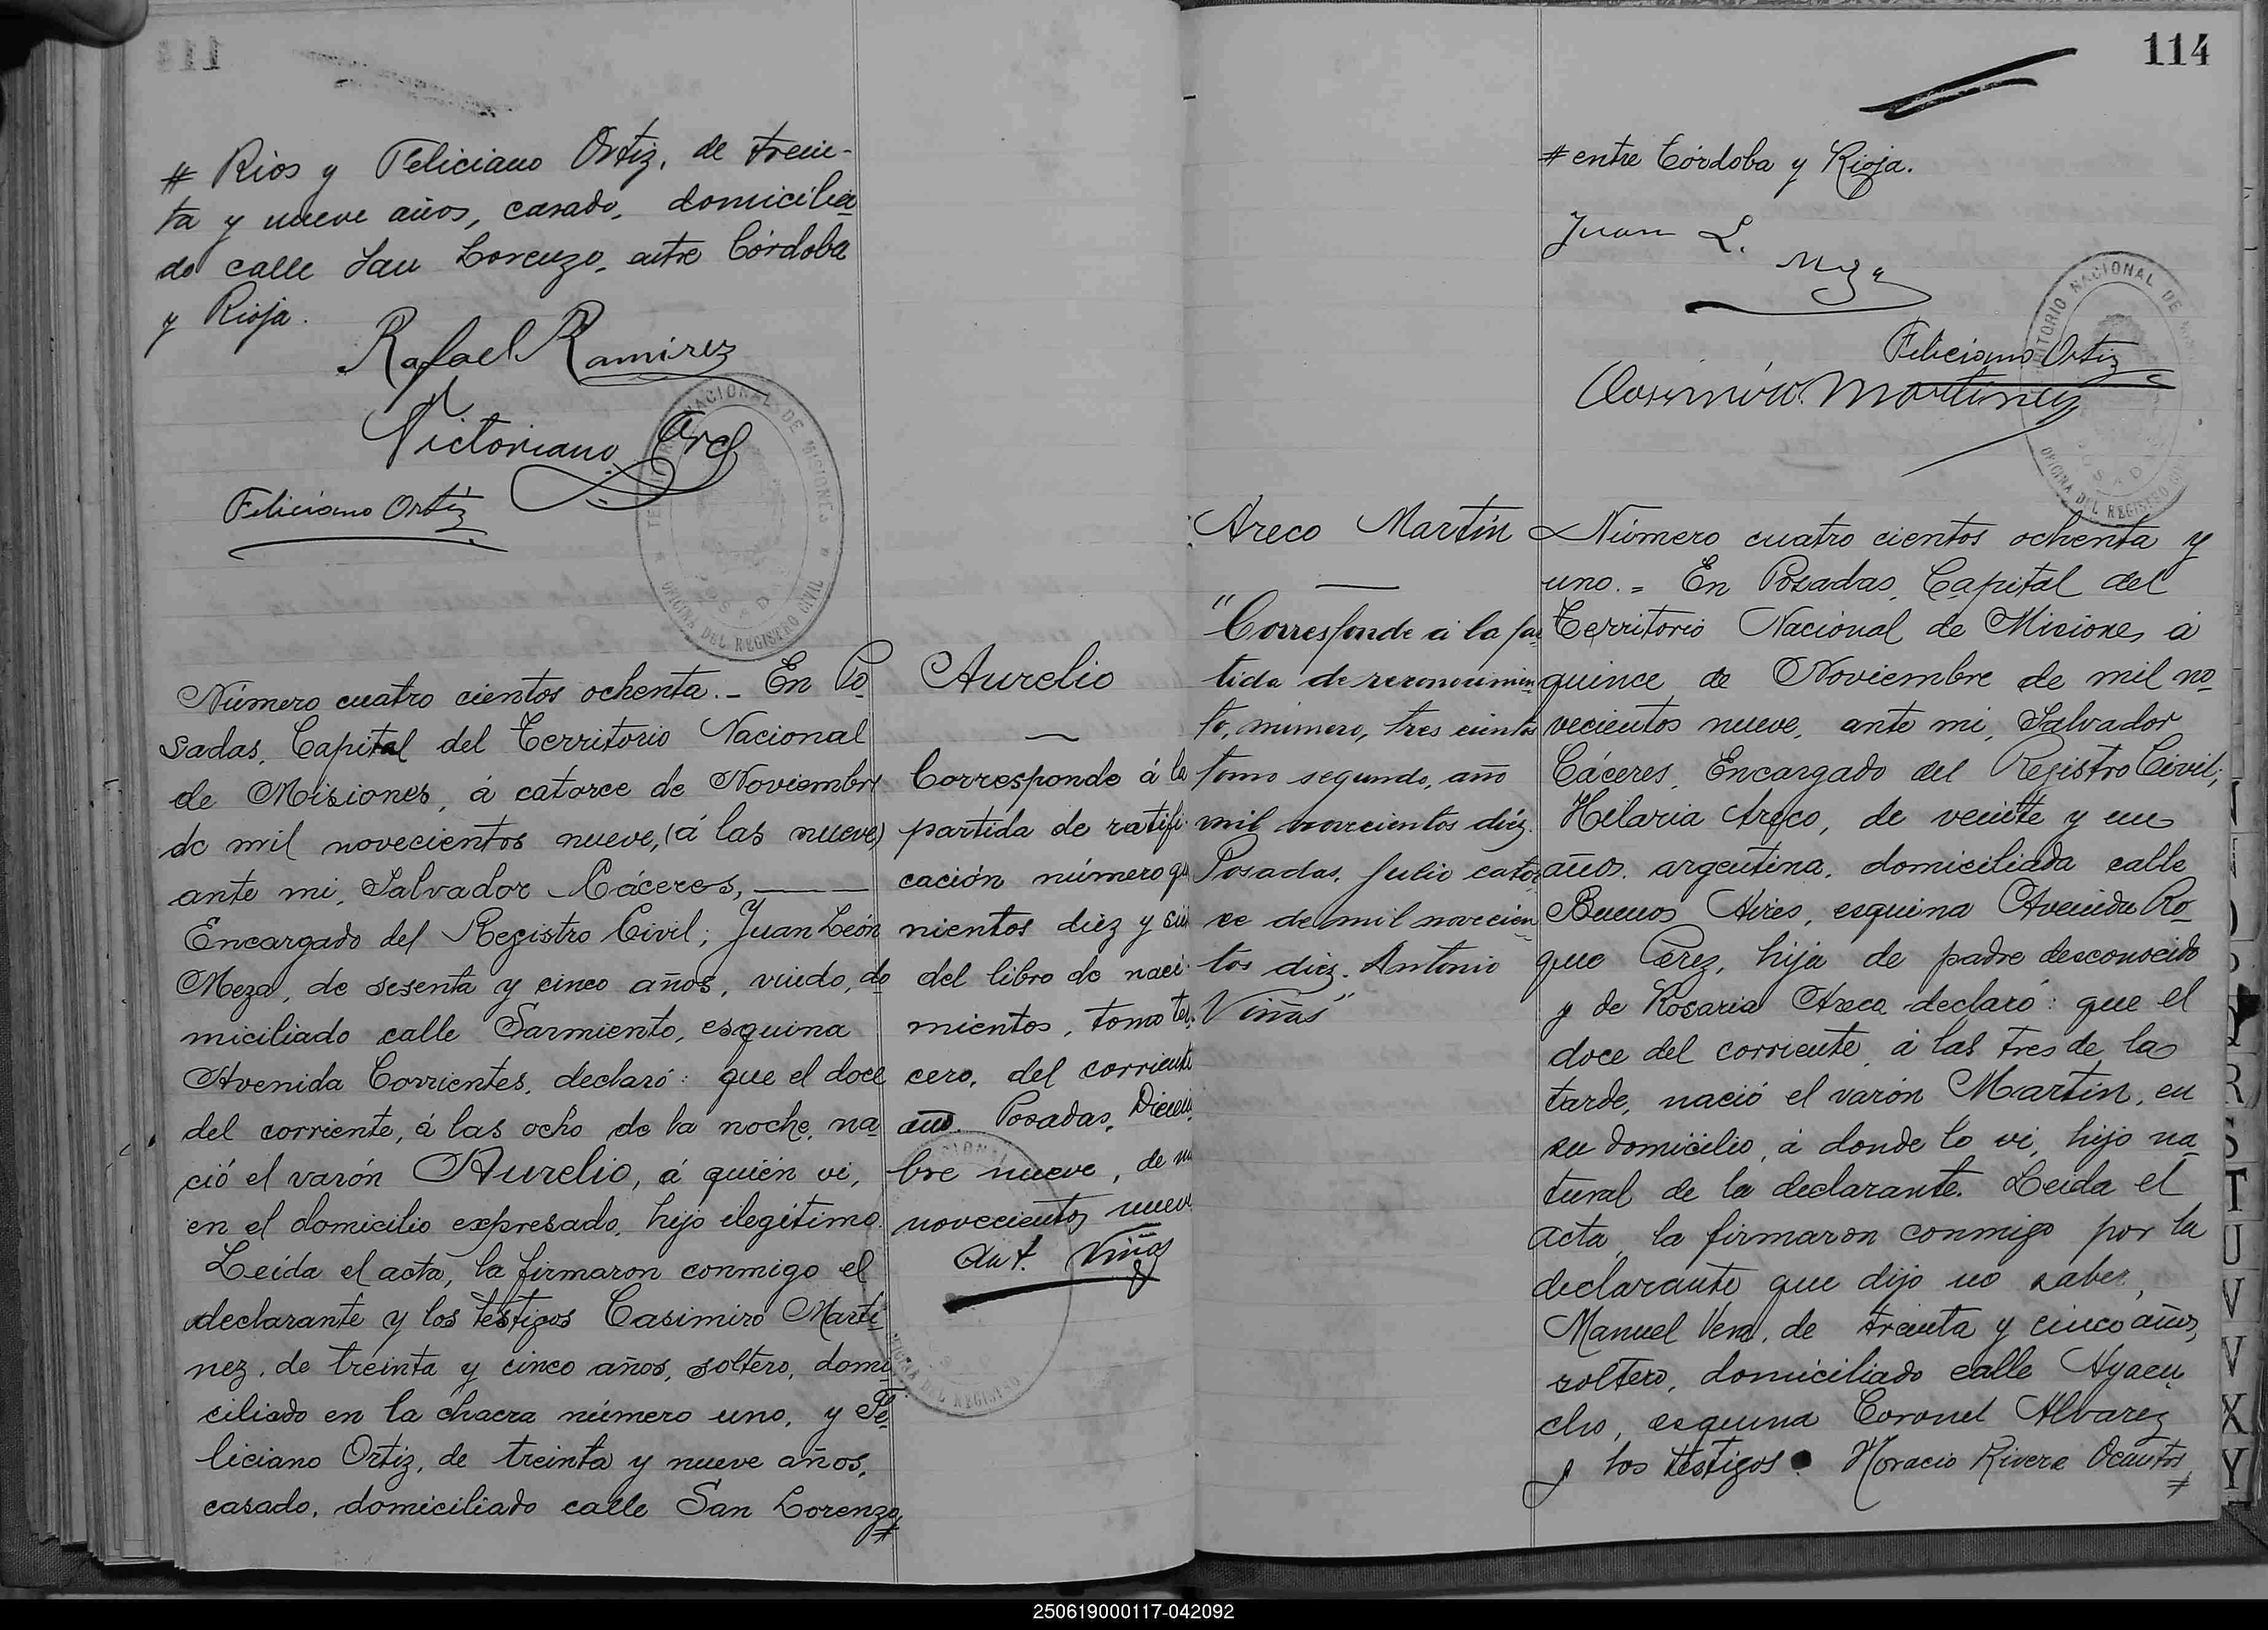 # Rios y Feliciano Ortiz, de trein-
ta y nueve años, casado, domicilia
do calle San Lorenzo, entre Córdoba
y Rioja.
Rafael Ramirez
Victoriano Arce
Feliciano Ortiz
TERRITORIO NACIONAL DE MISIONES
POSADAS
OFICINA DEL REGISTRO CIVIL
Número cuatro cientos ochenta._ En Po
sadas, Capital del Territorio Nacional
de Misiones, á catorce de Noviembre
de mil novecientos nueve, (á las nueve)
ante mi, Salvador Cáceres,
Encargado del Registro Civil; Juan León
Meza, de sesenta y cinco años, viudo, do
miciliado calle Sarmiento, esquina
Avenida Corrientes, declaró: que el doce
del corriente, á las ocho de la noche, na
ció el varón Aurelio, á quién vi,
en el domicilio expresado, hijo ilegítimo.
Leída el acta, la firmaron conmigo el
declarante y los testigos Casimiro Martí-
nez, de treinta y cinco años, soltero, domi
ciliado en la chacra número uno, y Fe-
liciano Ortiz, de treinta y nueve años,
casado, domiciliado calle San Lorenzo
#
Aurelio
Corresponde á la
partida de ratifi-
cación número qui
nientos diez y
del libro de naci-
mientos, tomo ter
cero, del corriente
año. Posadas, Diciem
bre nueve, de mil
novecientos nueve
Ant. Viñas
114
# entre Córdoba y Rioja.
Juan L.
Meza
Feliciano Ortiz
Casimiro Martinez
TERRITORIO NACIONAL DE MISIONES
POSADAS
OFICINA DEL REGISTRO CIVIL
Areco Martín
"Corresponde á la par
tida de reconocimien
to, número, tres cientos
tomo segundo, año
mil novecientos diéz.
Posadas, Julio cator
ce de mil novecien-
tos diez. Antonio
Viñas"
Número cuatro cientos ochenta y
uno.= En Posadas, Capital del
Territorio Nacional de Misiones, á
quince de Noviembre de mil no-
vecientos nueve, ante mi, Salvador
Cáceres, Encargado del Registro Civil;
Hilaria Areco, de veinte y un
años, argentina, domiciliada calle
Buenos Aires, esquina Avenida Ro-
que Pérez, hija de padre desconocido
y de Rosaria Areco declaró: que el
doce del corriente, á las tres de la
tarde, nació el varón Martín, en
su domicilio, á donde lo vi, hijo na-
tural de la declarante. Leida el
acta, la firmaron conmigo por la
declarante que dijo no saber,
Manuel Vera, de treinta y cinco años,
soltero, domiciliado calle Ayacu-
cho, esquina Coronel Alvarez
y los testigos Horacio Rivera Ocantos
#
R
S
T
U
V
V
X
Y
250619000117-042092